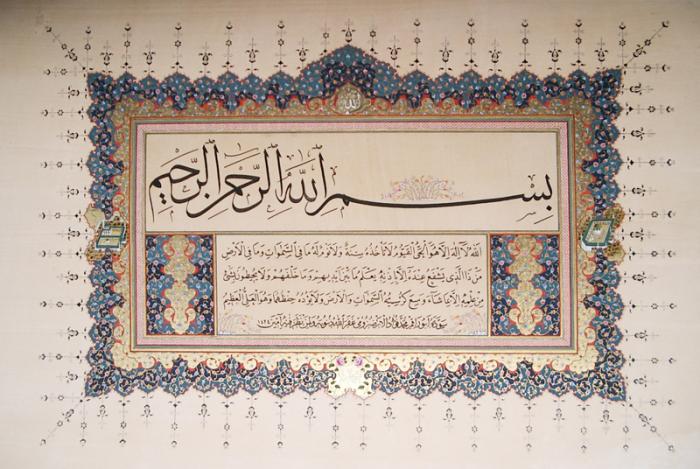 الله
بِسْمِ اللهِ الرَّحْمٰنِ الرَّحِيمِ
اَللهُ لَا اِلٰهَ اِلَّا هُوَ الْحَيُّ الْقَيُّومُ لَا تَأْخُذُهُ سِنَةٌ وَلَا نَوْمٌ لَهُ مَا فِي السَّمٰوَاتِ وَمَا فِي الْاَرْضِ
مَنْ ذَا الَّذِي يَشْفَعُ عِنْدَهُ اِلَّا بِاِذْنِهِ يَعْلَمُ مَا بَيْنَ اَيْدِيهِمْ وَمَا خَلْفَهُمْ وَلَا يُحِيطُونَ بِشَيْءٍ
مِنْ عِلْمِهِ اِلَّا بِمَا شَاءَ وَسِعَ كُرْسِيُّهُ السَّمٰوَاتِ وَالْاَرْضَ وَلَا يَؤُدُهُ حِفْظُهُمَا وَهُوَ الْعَلِيُّ الْعَظِيمُ
غفر الله ذنوبه